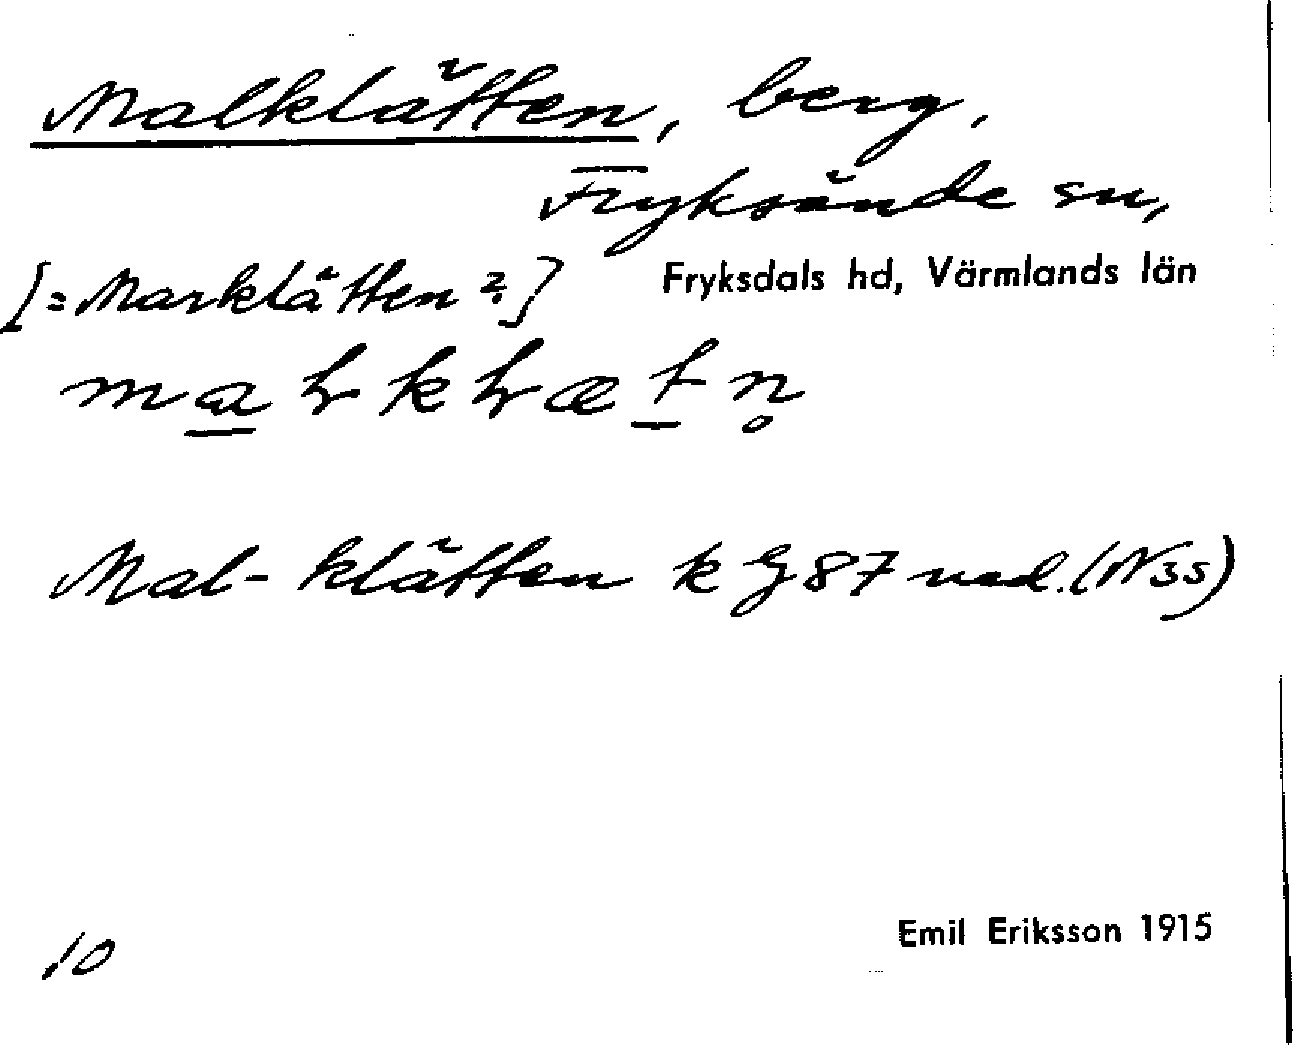 Malklätten, berg,
Fryksände sn,
[= Marklätten?]
Fryksdals hd, Värmlands län
Mal-klätten k G 87 ned. (N35)
10
Emil Eriksson 1915